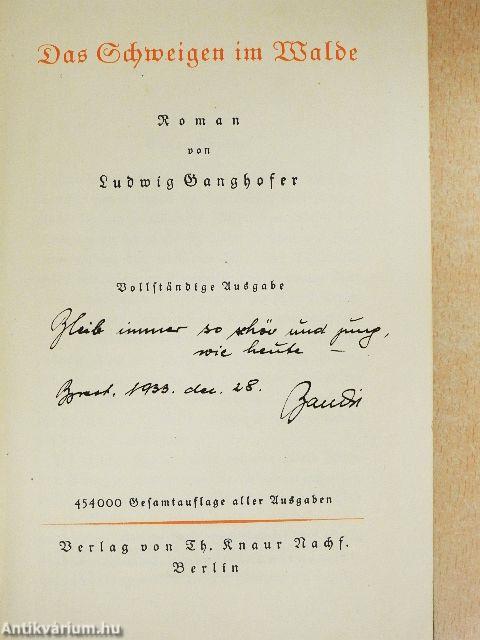 Das Schweigen im Walde
Roman
von
Ludwig Ganghofer
Vollständige Ausgabe
Bleib immer so schön und jung,
wie heute –
1933. dec. 28.
454000 Gesamtauflage aller Ausgaben
Verlag von Th. Knaur Nachf.
Berlin
Antikvárium.hu